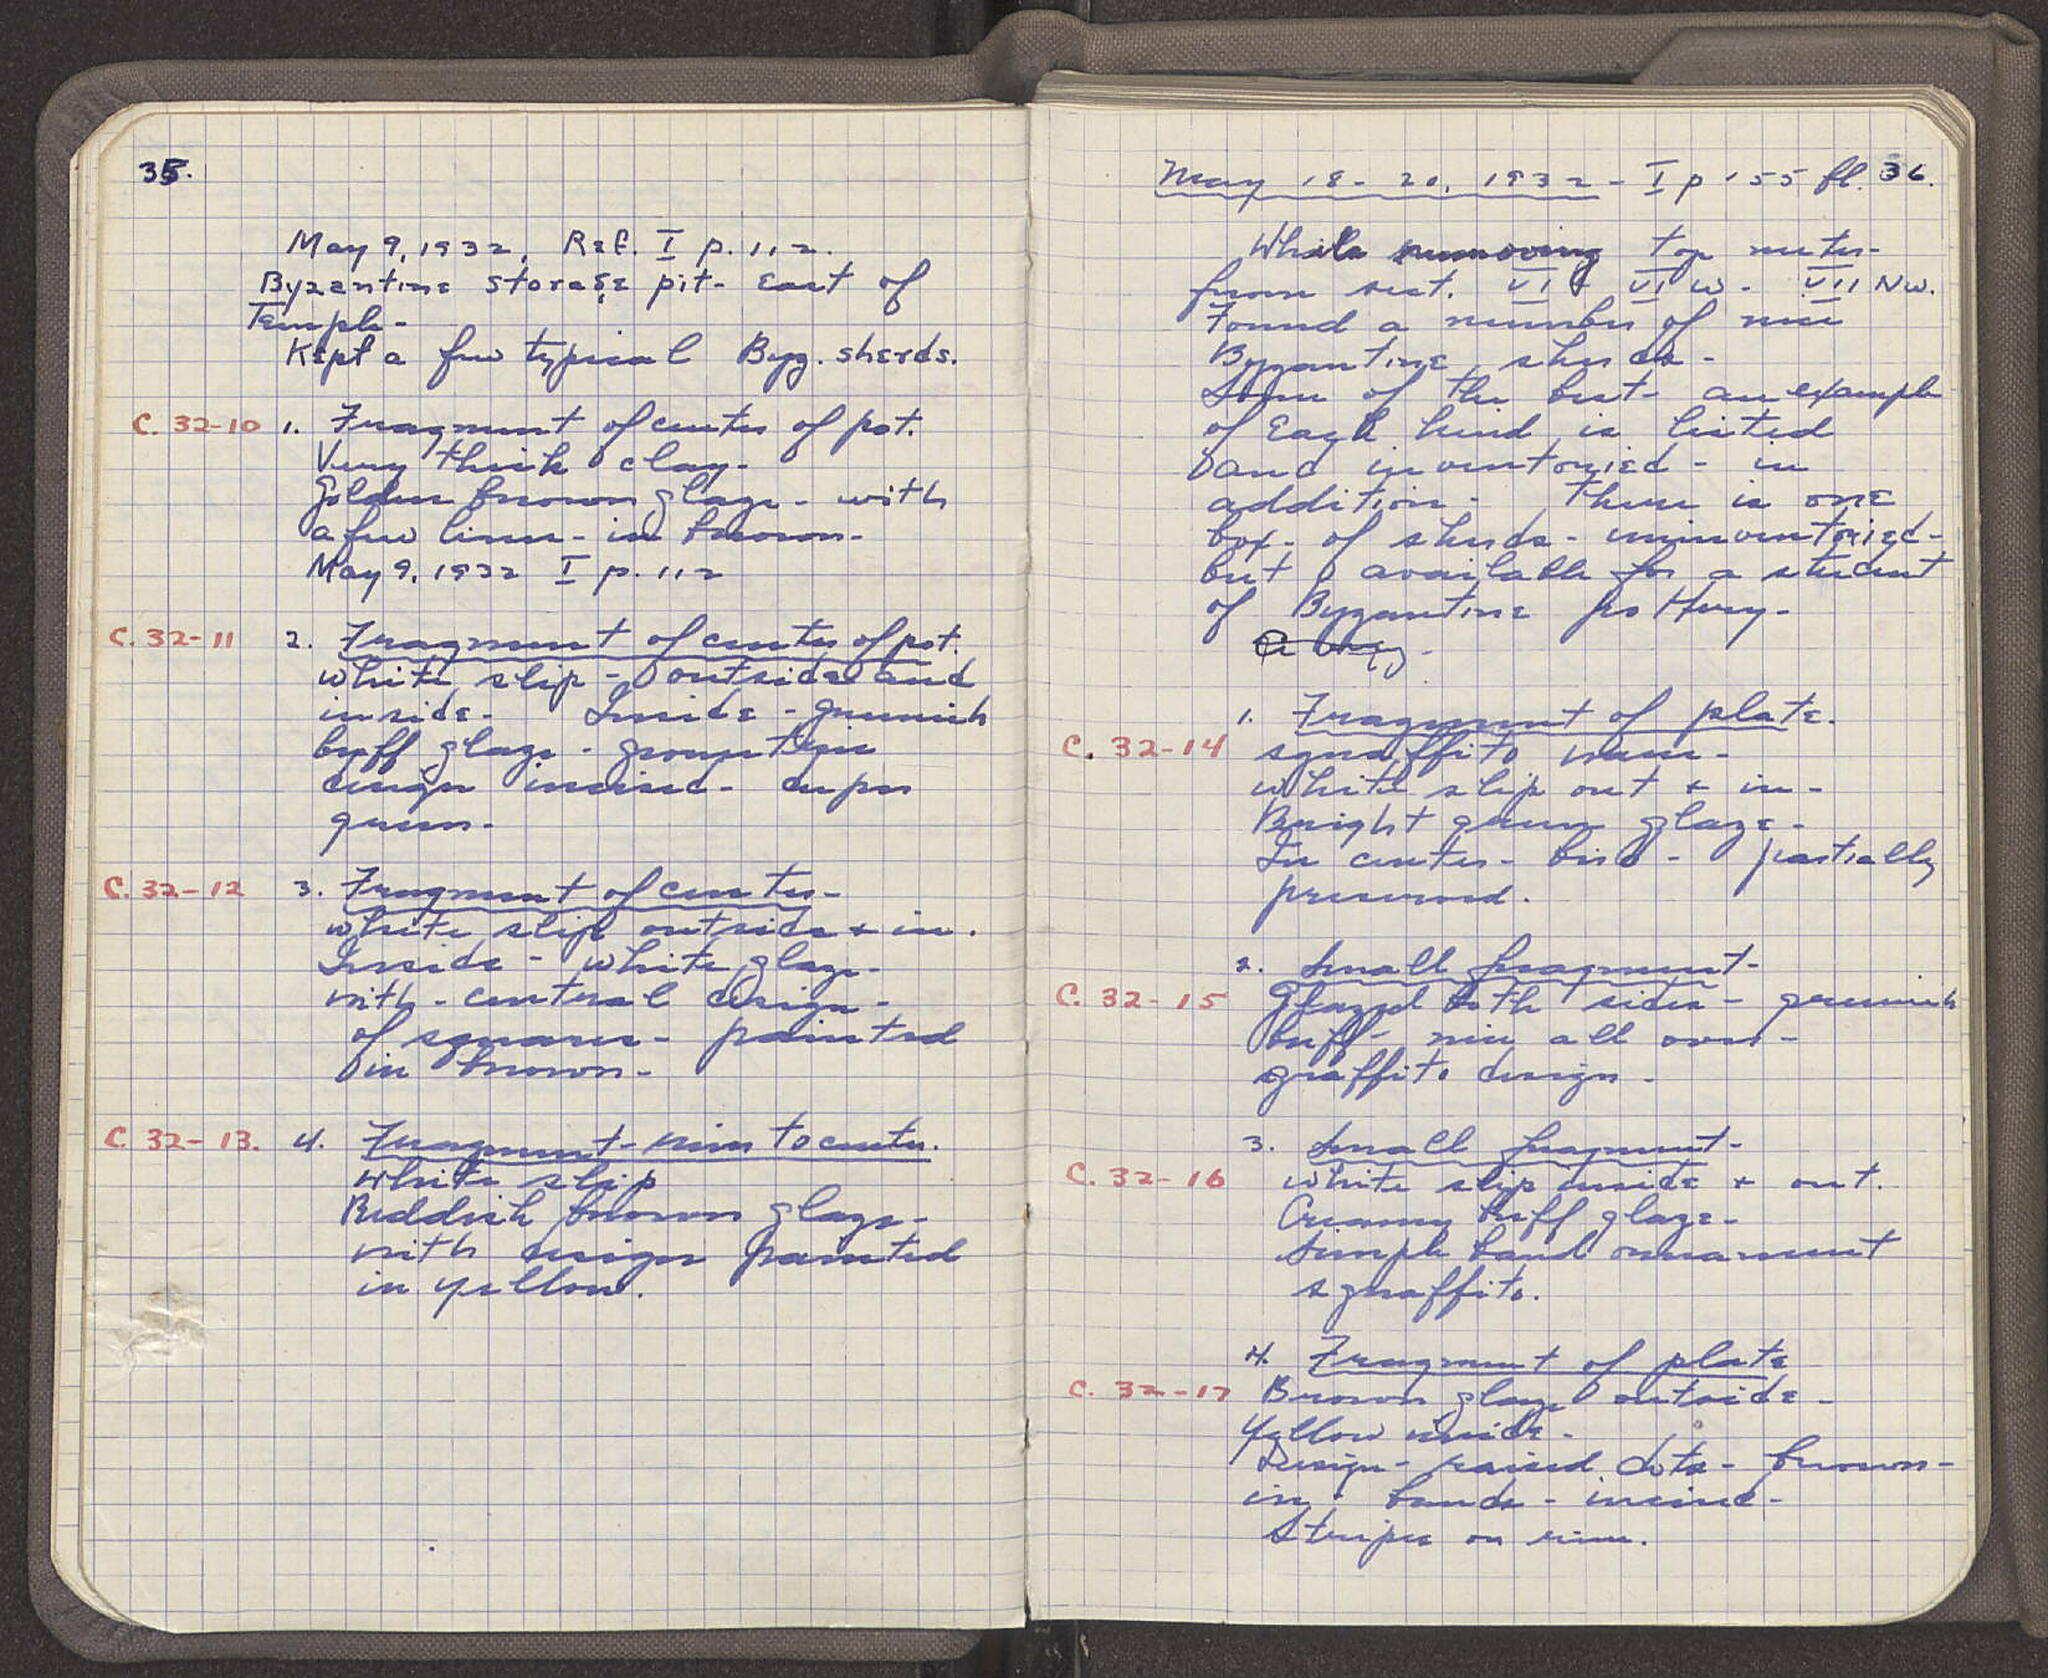 35.
May 9, 1932, Ref. I p. 112.
Byzantine storage pit - East of
Temple -
Kept a few typical Byz. sherds.
C. 32-10 1. Fragment of center of pot.
Very thick clay -
Golden brown glaze - with
a few lines - in brown -
May 9, 1932 I p. 112
C. 32-11 2. Fragment of center of pot.
white slip - outside and
inside - Inside - greenish
buff glaze - geometric
design incised - deeper
green -
C. 32-12 3. Fragment of center -
white slip outside + in.
Inside - white glaze -
with - central design -
of squares - painted
in brown -
C. 32-13. 4. Fragment - rim to center.
White slip
Reddish brown glaze -
with design painted
in yellow.
May 18 - 20, 1932 - I p 155 ff. 36.
While removing top meter -
from sect. VI + VI W - VII NW.
Found a number of nice
Byzantine sherds -
Some of the best - an example
of Each kind is listed
and inventoried - in
addition - There is one
box - of sherds - uninventoried -
but available for a student
of Byzantine pottery -
1. Fragment of plate.
C. 32-14 sgraffito ware -
white slip out + in -
Bright green glaze -
In center - bird - partially
preserved.
2. Small fragment -
C. 32-15 Glazed both sides - greenish
buff - nice all over -
graffito design -
3. Small fragment -
C. 32-16 white slip inside + out.
Creamy buff glaze -
Simple band ornament
sgraffito.
4. Fragment of plate
C. 32-17 Brown glaze outside -
Yellow inside -
Design - raised dots - brown -
in - bands - incised -
Stripes on rim.